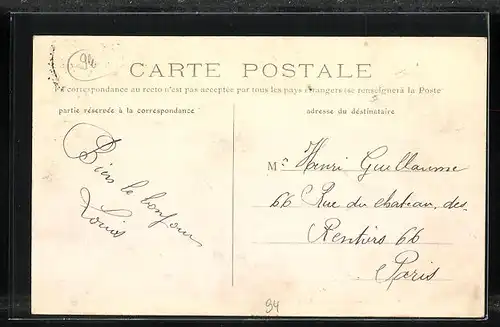 94
CARTE POSTALE
La correspondance au recto n'est pas acceptée par tous les pays étrangers (se renseigner à la Poste
partie réservée à la correspondance
adresse du déstinataire
Bien le bonjour
Louis
Mr Henri Guillaume
66 Rue du chateau des
Rentiers 66
Paris
94